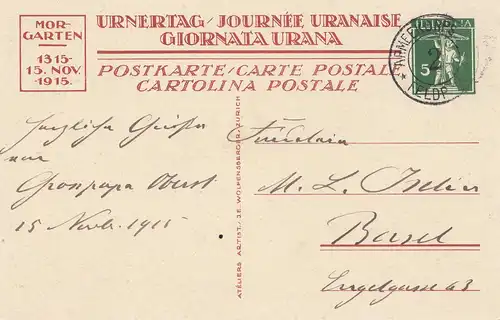 MOR-
GARTEN
1315-
15. NOV.
1915.
URNERTAG / JOURNÉE URANAISE
GIORNATA URANA
POSTKARTE / CARTE POSTALE
CARTOLINA POSTALE
HELVETIA
5
2
FELDP
Herzliche Grüße
von
Grosspapa Oberst
15 Novb. 1915
Fräulein
M. L. Iselin
Basel
Engelgasse 63
ATELIERS ARTIST. J.E. WOLFENSBERGER, ZURICH